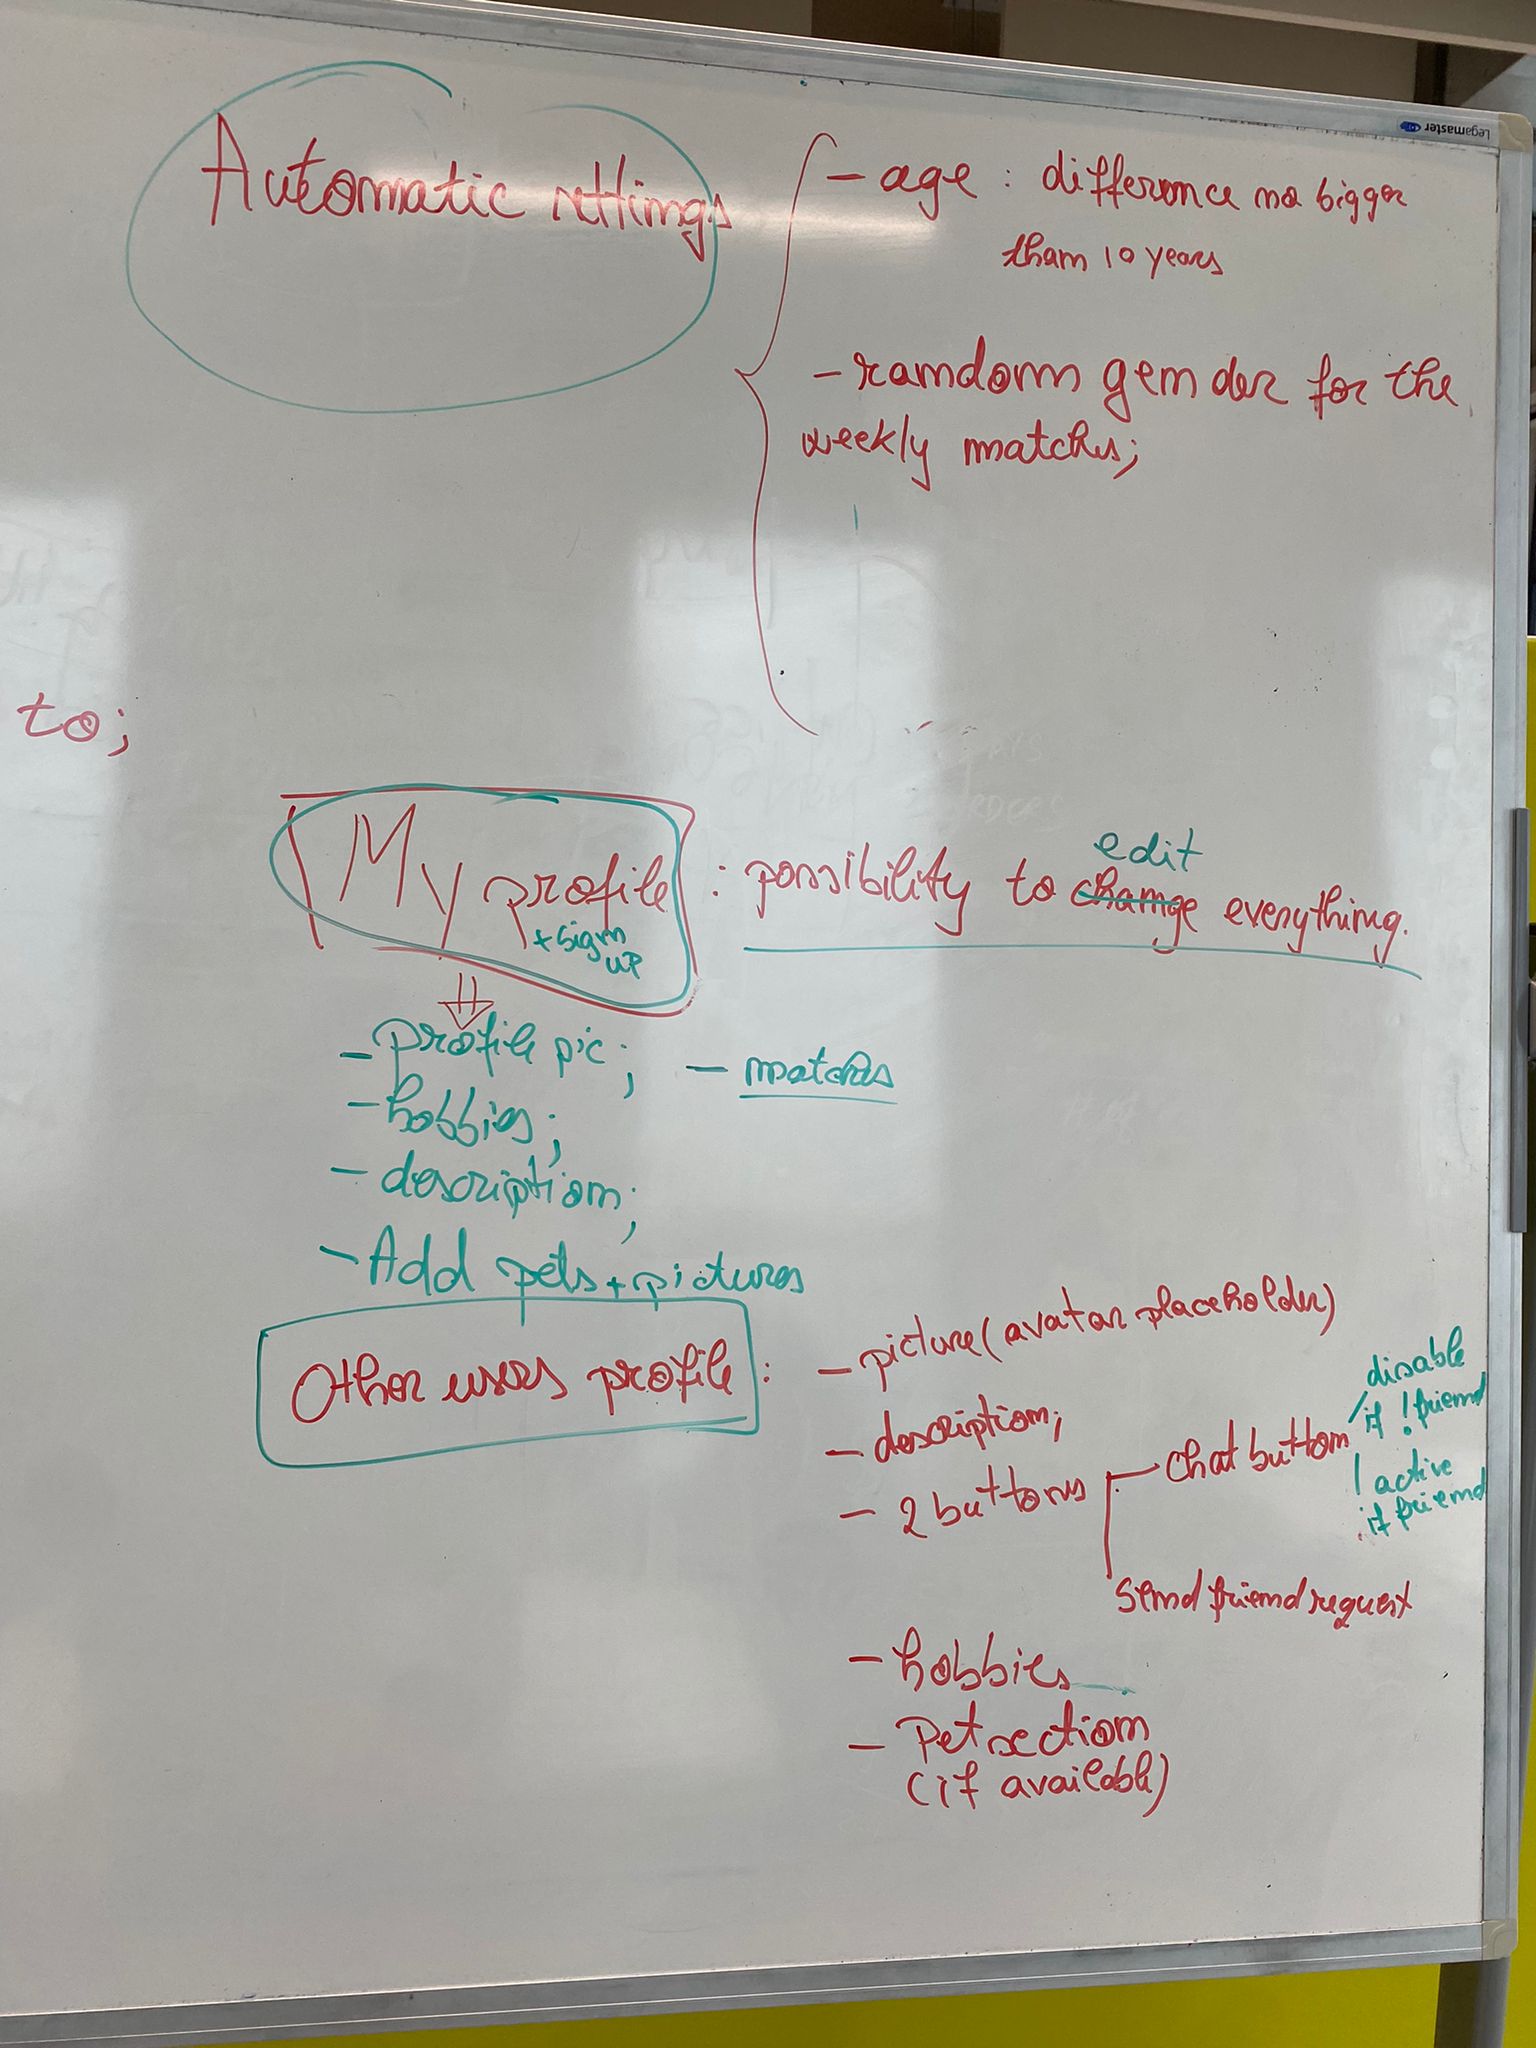 Legamaster
Automatic settings
- age : difference no bigger
than 10 years
- random gender for the
weekly matches;
to;
My profile
+ sign
up
: possibility to change everything.
edit
- profile pic;
- matches
- hobbies;
- description;
- Add pets + pictures
Other users profile :
- picture (avatar placeholder)
- description;
- 2 buttons
chat button
disable
if ! friend
active
if friend
send friend request
- hobbies
- Pet section
(if available)